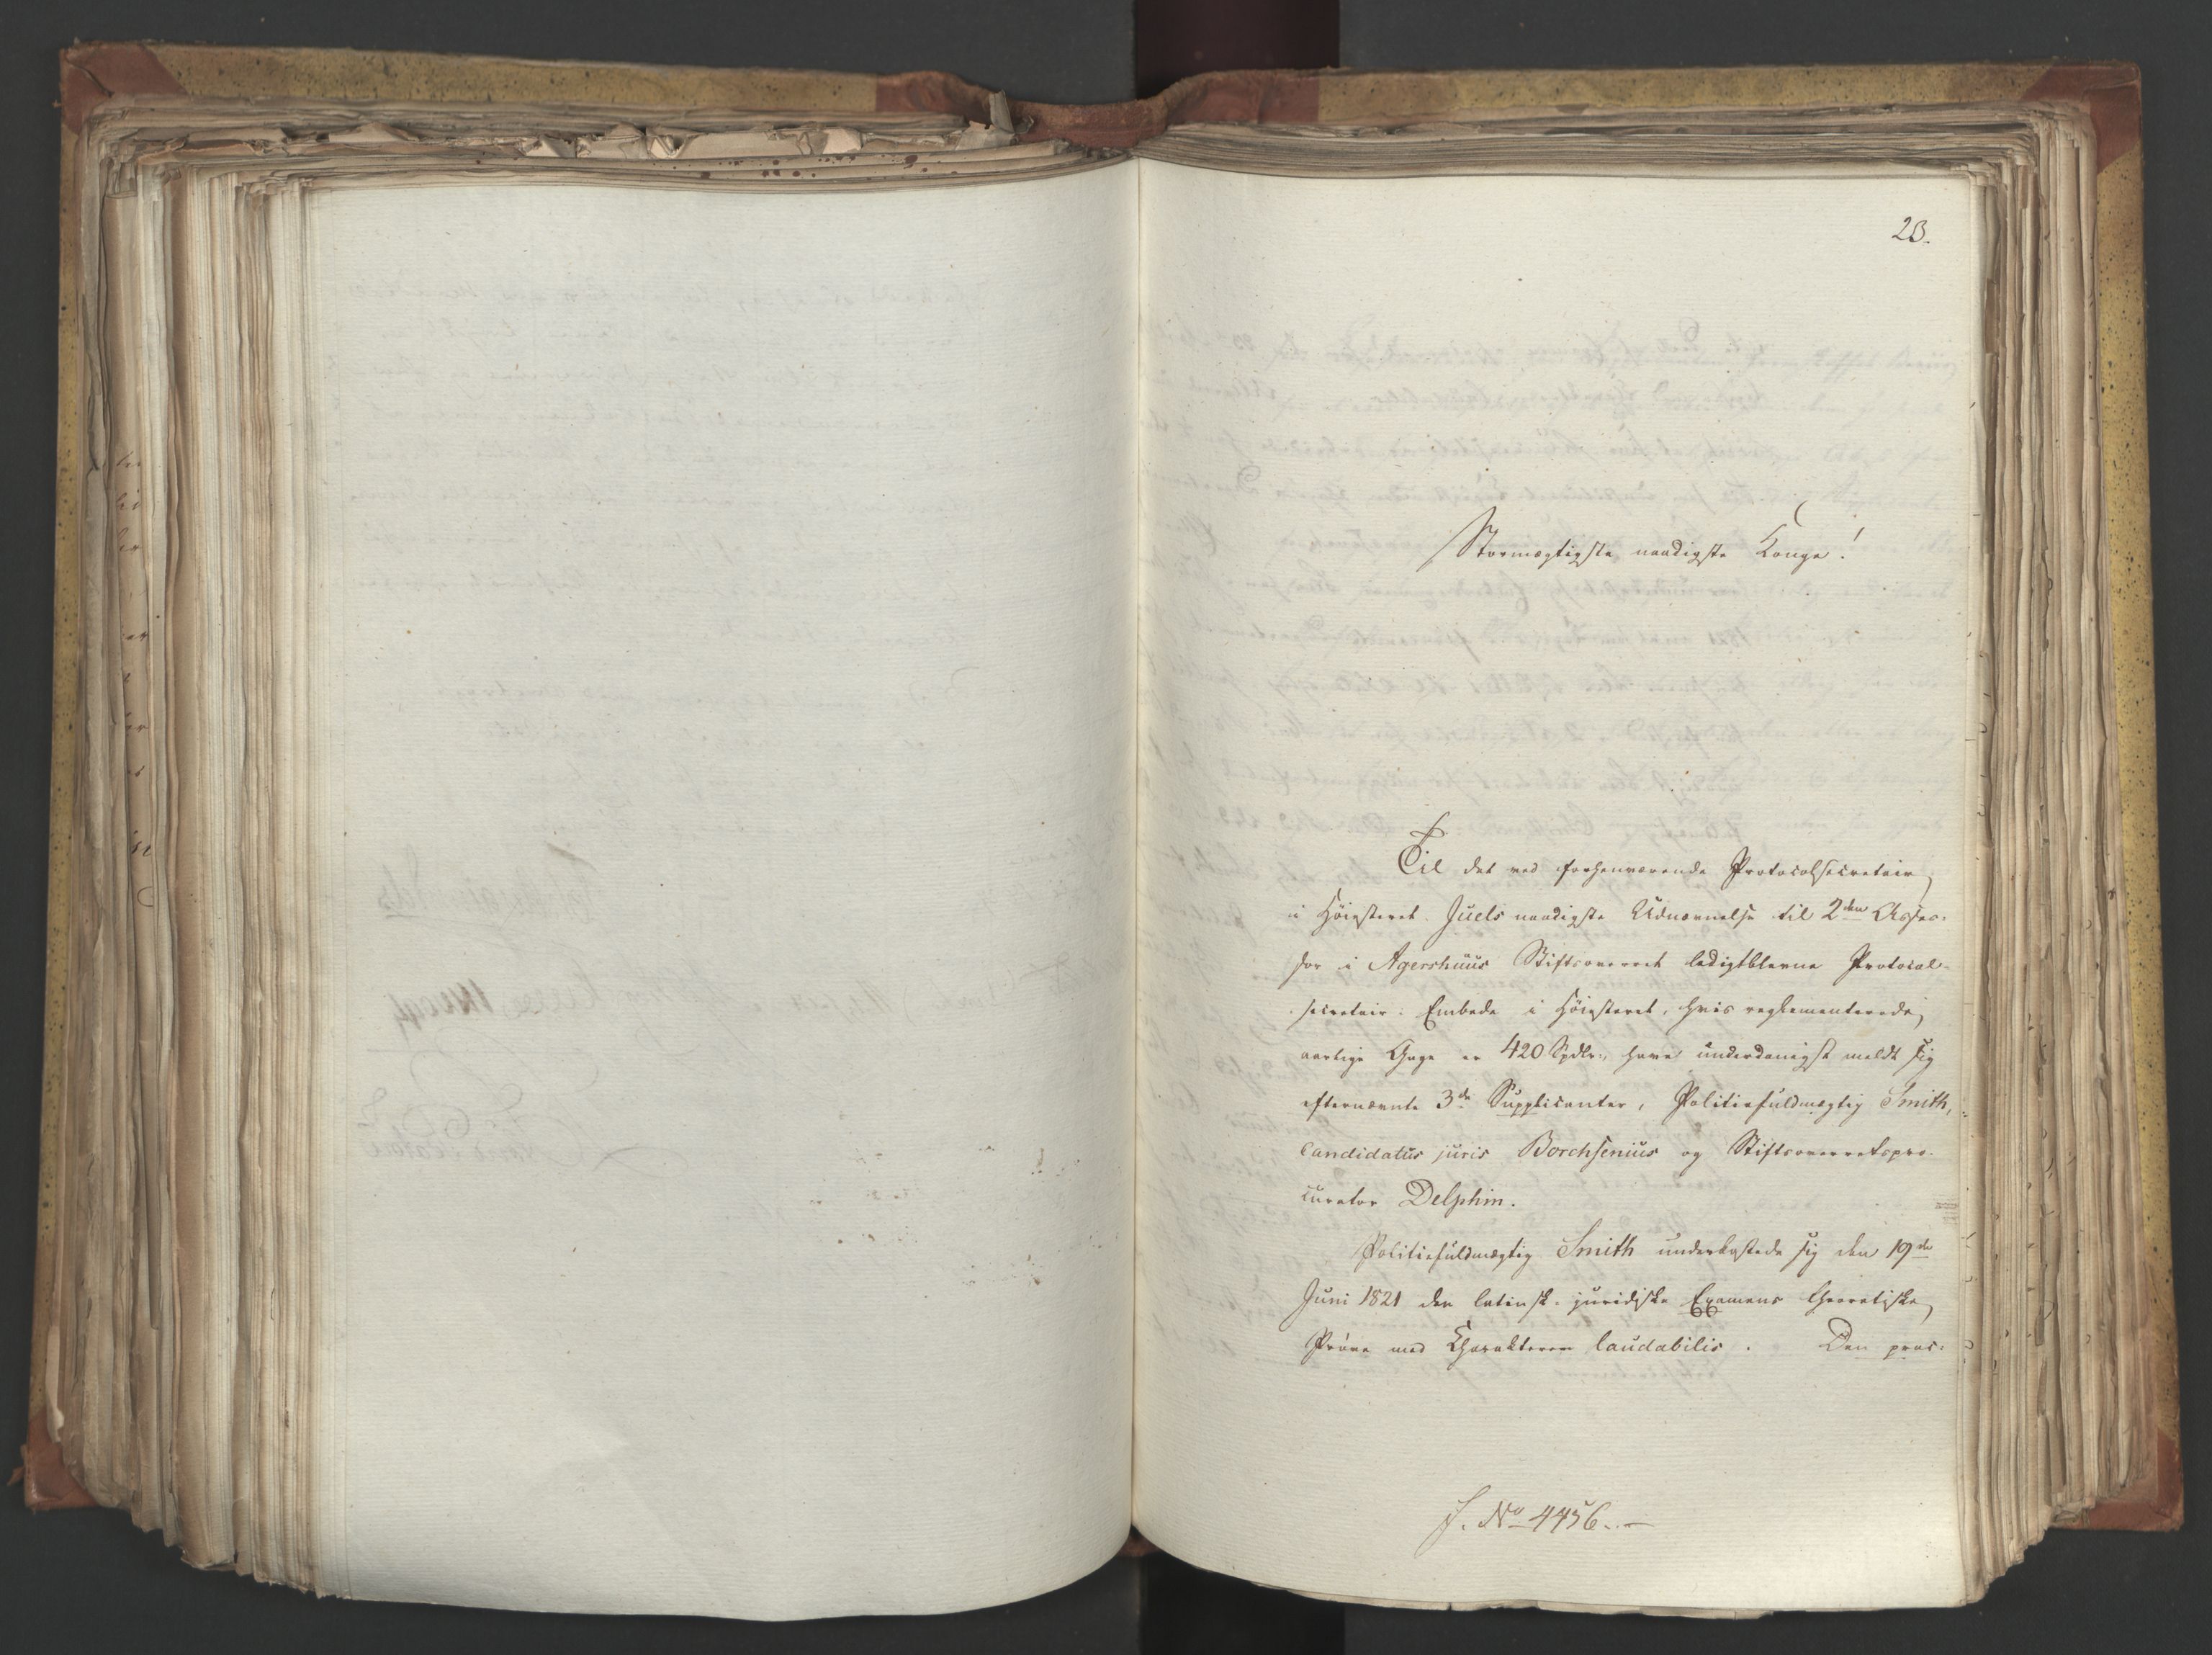 23.
Stormægtigste naadigste Konge!
Til det ved forhenværende Protocolsecretair
i Høiesteret Juels naadigste Udnævnelse til 2den Asses-
sor i Agershuus Stiftsoverret ledigtblevne Protocol-
secretair-Embede i Høiesteret, hvis reglementerede
aarlige Gage er 420 Spdlr:, have underdanigst meldt sig
efternævnte 3de Supplicanter, Politiefuldmægtig Smith,
Candidatus juris Borchsenius og Stiftsoverretspro-
curator Delphin.
Politiefuldmægtig Smith underkastede sig den 19de
Juni 1821 den latinsk-juridiske Examens theoretiske
Prøve med Charakteren laudabilis. Den prac-
J. No 4456.-